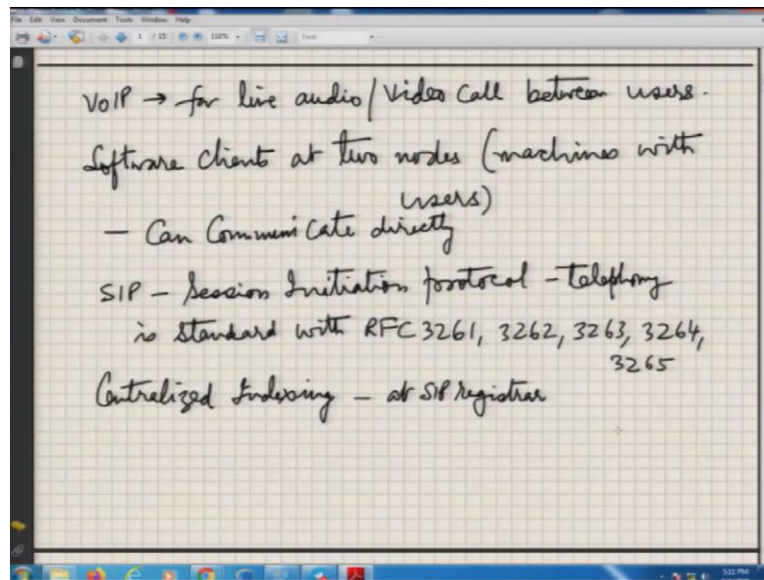 File Edit View Document Tools Window Help
1 / 15 110% Find
VoIP → for live audio/Video Call between users.
Software Clients at two nodes (machines with
users)
— Can Communicate directly
SIP – Session Initiation protocol – Telephony
is standard with RFC 3261, 3262, 3263, 3264,
3265
Centralized Indexing – at SIP registrar
5:11 PM